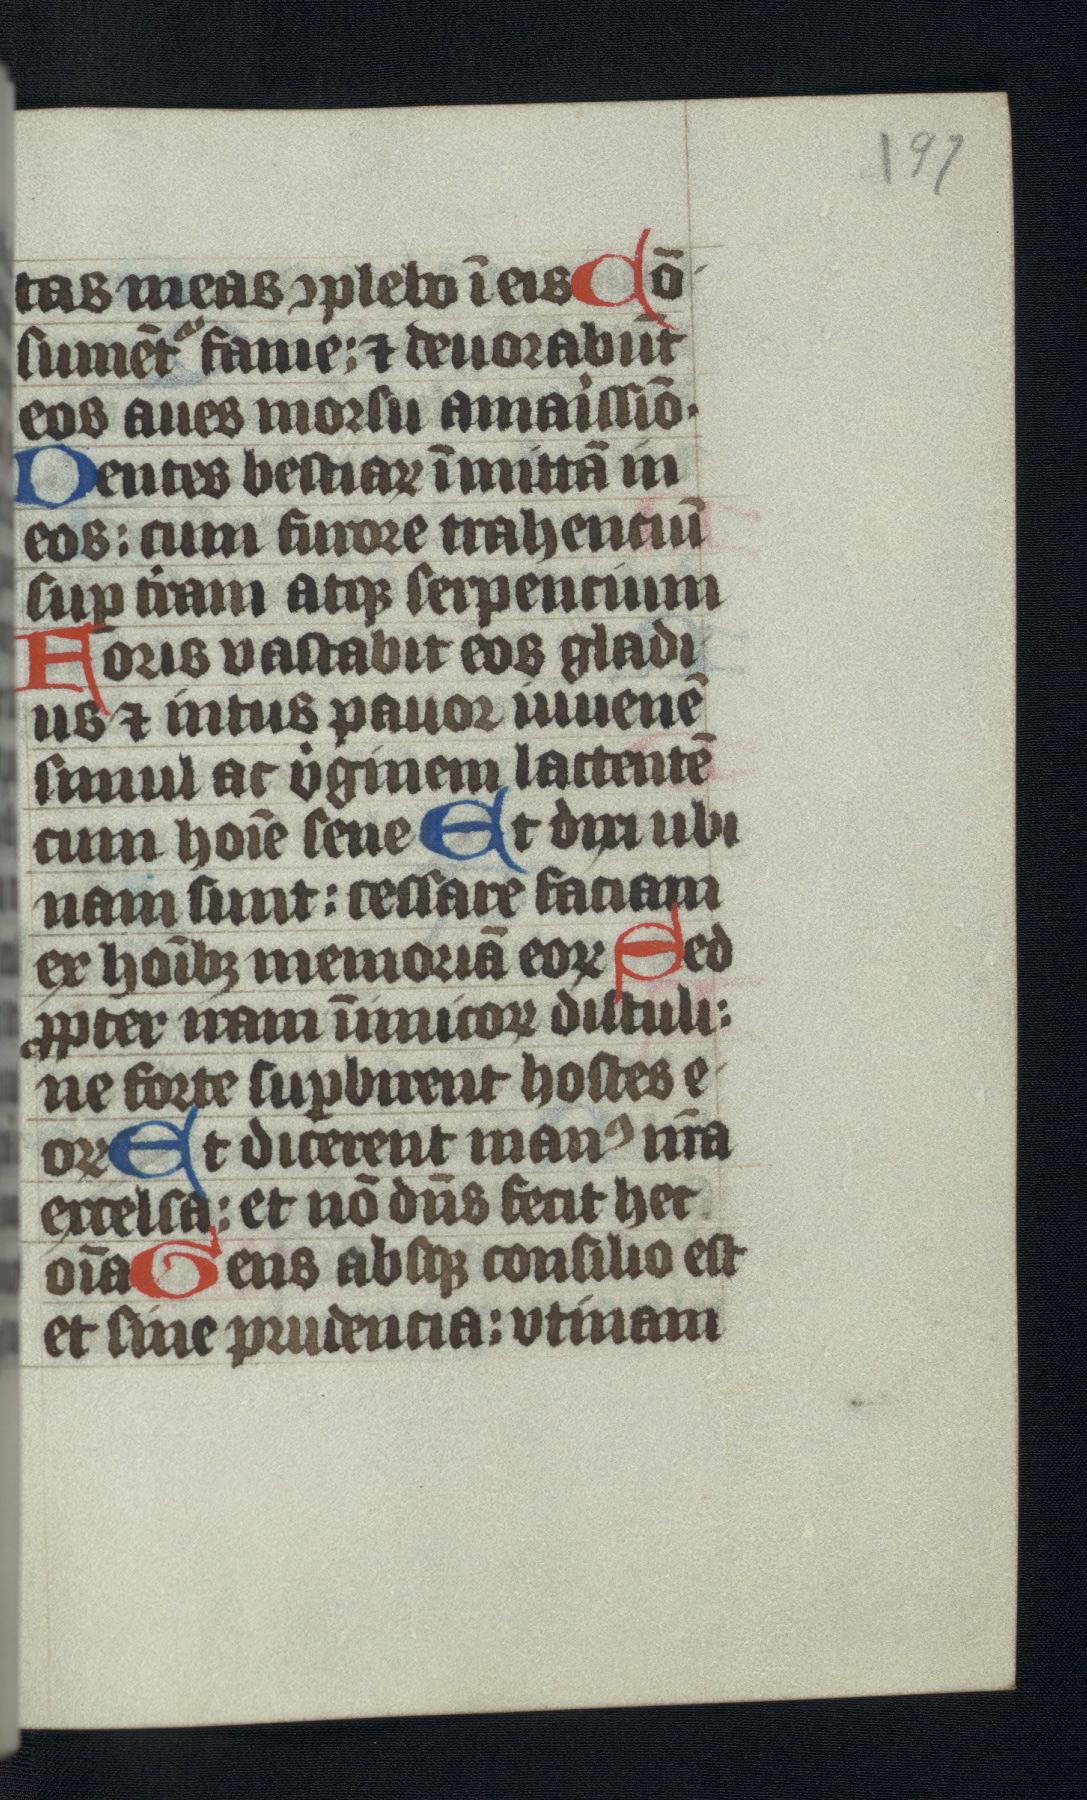 197
tas meas ꝯplebo ī eis Cō
sumēt᷑ fame: ⁊ deuorabūt
eos aues morsu amaissīo.
Dentes bestiaꝝ īmittā in
eos: cum furore trahenciū
suꝑ tʳram atqꝫ serpencium
Foris vastabit eos gladi
us ⁊ intus pauor iuuenē
simul ac vⁱginem lactentē
cum hoīe sene Et dixi ubi
nam sunt: cessare faciam
ex hoībꝫ memoriā eoꝝ Sed
ꝓpter iram īimicoꝝ distuli:
ne forte suꝑbirent hostes e
oꝝ Et dicerent manꝰ nr̄a
excelsa: et nō dn̄s fecit hec
oīa Gens absqꝫ consilio est
et sine prudencia: vtinam